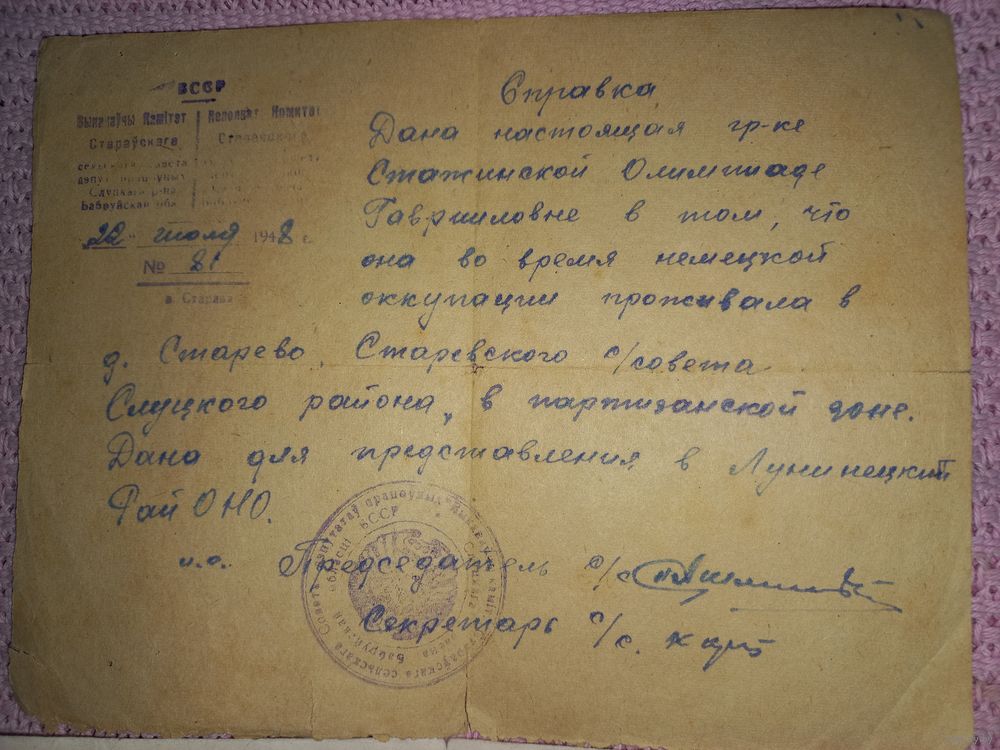 БССР
Выканаўчы Камітэт
Стараўскага
сельскага Савета
дэпут. працоўных
Слуцкага р-на
Бабруйскай обл.
Исполнит. Комитет
Старевского
22 июля 1948 г.
№ 81
в. Старива
Справка
Дана настоящая гр-ке
Стажинской Олимпиаде
Гаврииловне в том, что
она во время немецкой
оккупации проживала в
д. Старево, Старевского с/совета
Слуцкого района, в партизанской зоне.
Дана для представления в Лунинецкий
Рай ОНО.
и.о. Председатель с/с
Секретарь с/с.